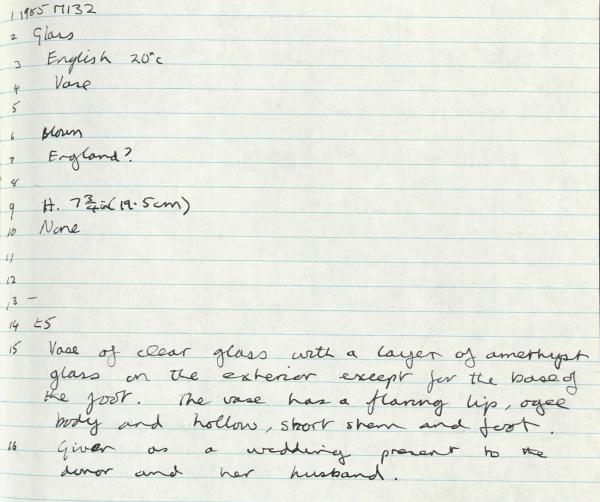 1 1985 M132
2 Glass
3 English 20thc
4 Vase
5
6 Blown
7 England?
8
9 H. 7 3/4in (19.5cm)
10 None
11
12
13 –
14 £5
15 Vase of clear glass with a layer of amethyst
glass on the exterior except for the base of
the foot. The vase has a flaring lip, ogee
body and hollow, short stem and foot.
16 Given as a wedding present to the
donor and her husband.